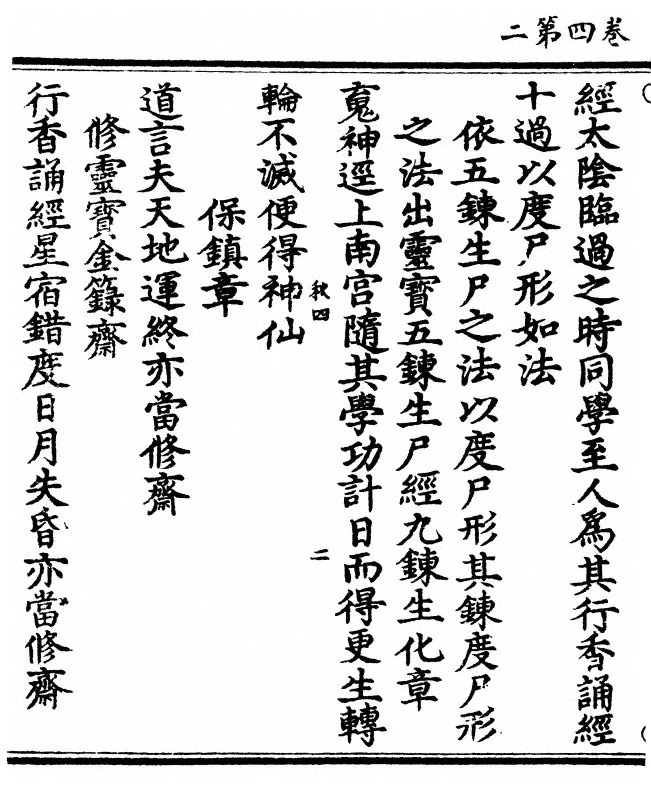 卷四第二
經太陰臨過之時同學至人爲其行香誦經
十過以度尸形如法
依五鍊生尸之法以度尸形其鍊度尸形
之法出靈寶五鍊生尸經九鍊生化章
䰟神逕上南宮隨其學功計日而得更生轉
輪不滅便得神仙
秋四
二
保鎮章
道言夫天地運終亦當修齋
修靈寶金籙齋
行香誦經星宿錯度日月失昏亦當修齋